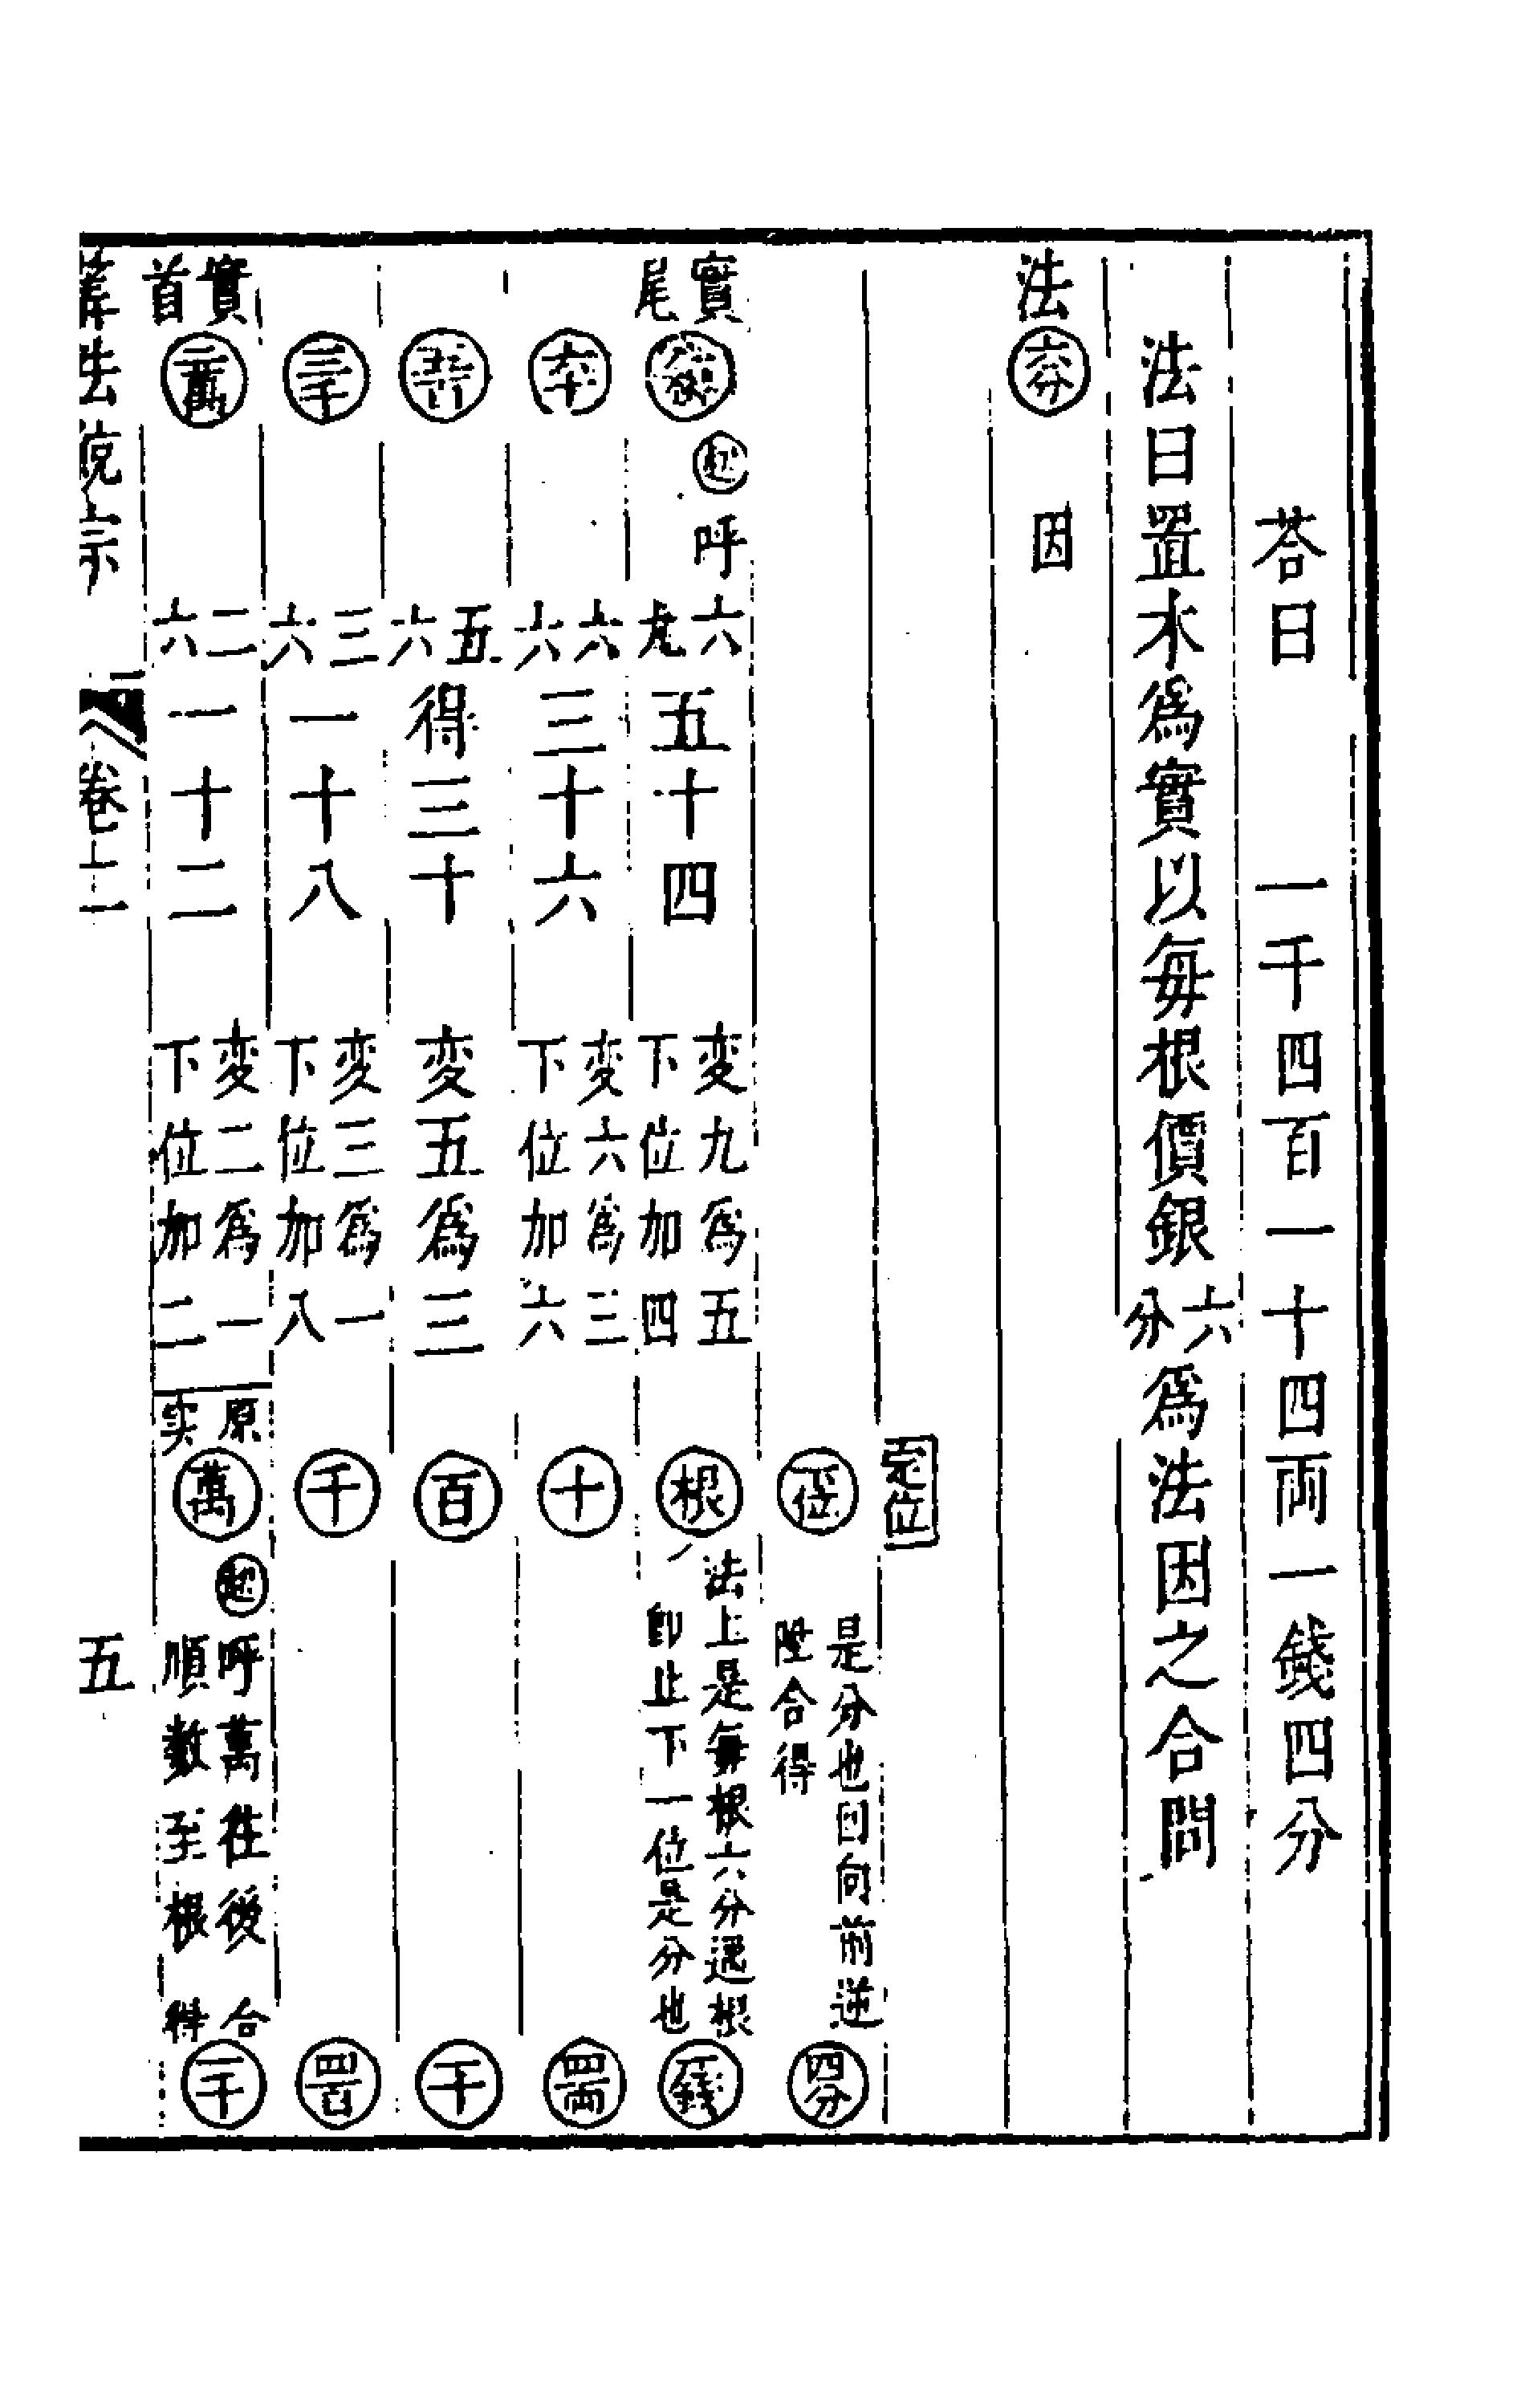 荅曰　一千四百一十四兩一錢四分
法曰置木爲實以每根價銀六分爲法因之合問
法　六分　因
定位
下位　是分也回向前逆陞合得　四分
實尾　九根　起　呼六九五十四　变九爲五下位加四　根　法上是每根六分遇根即止下一位是分也　一錢
六十　六六三十六　变六爲三下位加六　十　四兩
五百　五六得三十　变五爲三　百　一十
三千　三六一十八　变三爲一下位加八　千　四百
實首　二萬　二六一十二　变二爲一下位加二　原实　萬　起　呼萬往後順數至根合得　一千
算法統宗　卷二　五